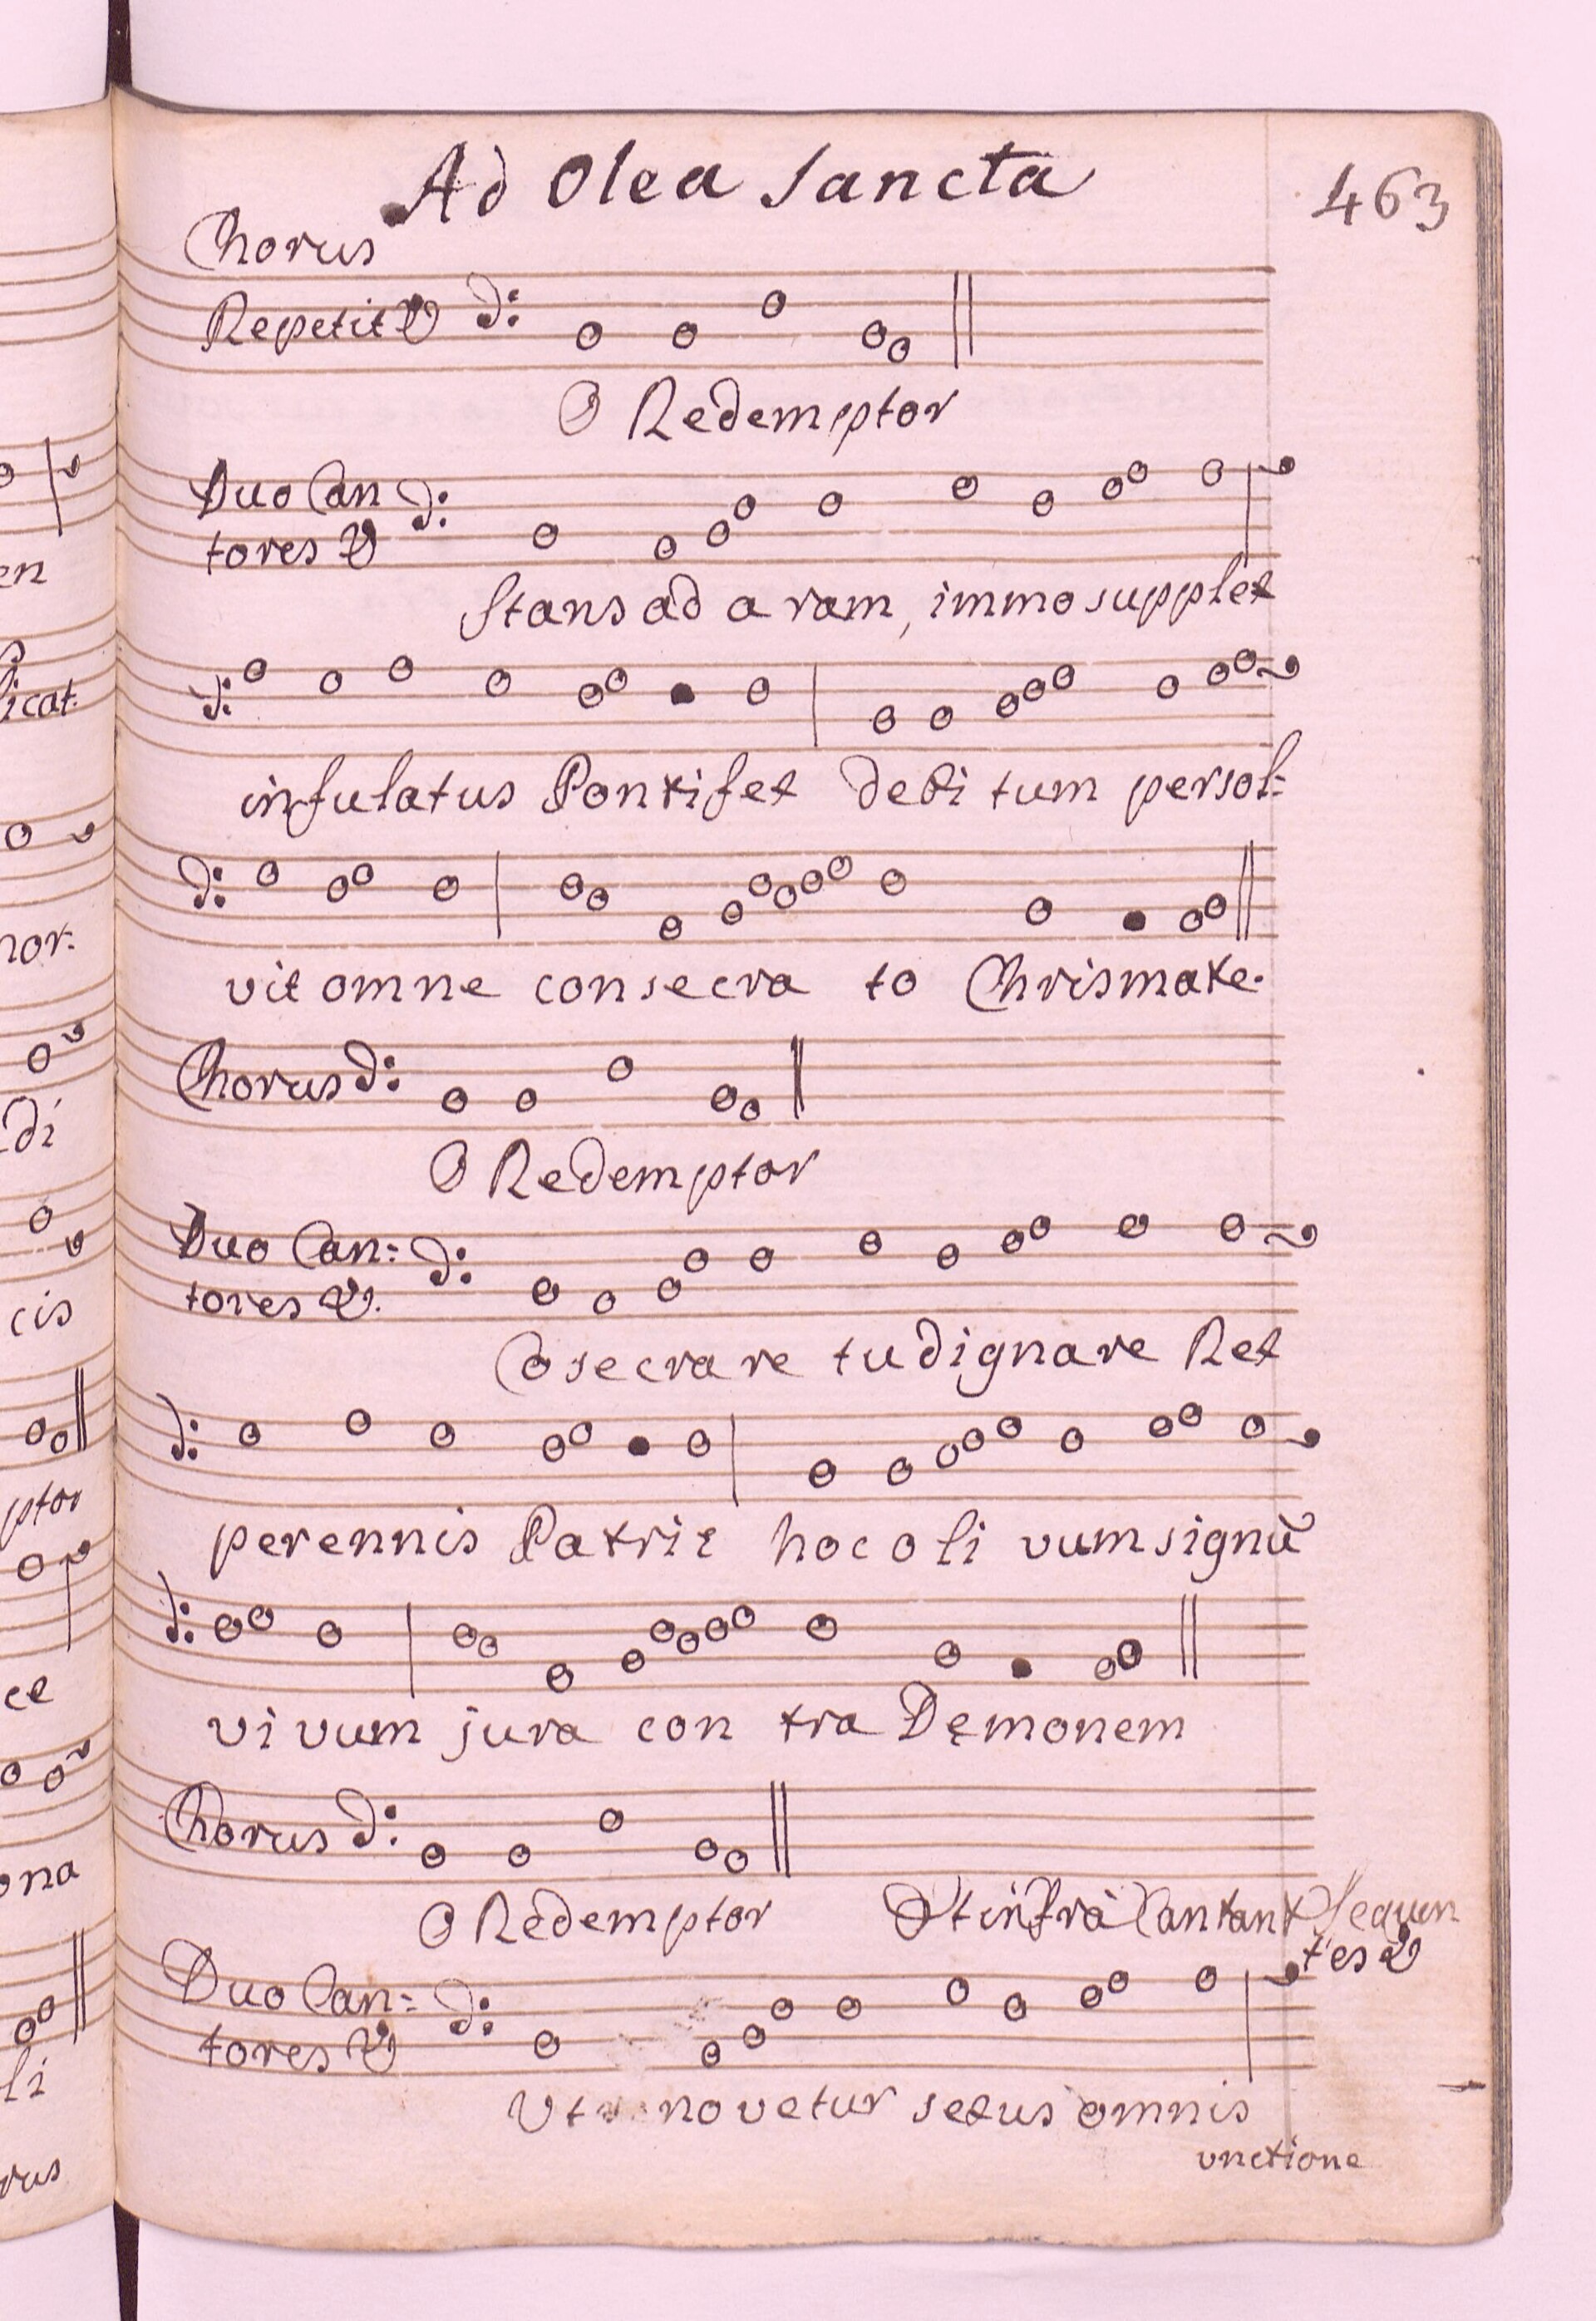 Ad Olea Sancta
463
Chorus
Repetit ℣
O Redemptor
Duo Can
tores ℣
Stans ad aram, immo supplex
infulatus Pontifex debitum persol:
vit omne consecrato Chrismate.
Chorus
O Redemptor
Duo Can:
tores ℣.
Cosecrare tu dignare Rex
perennis Patrie hoc olivum signũ
vivum jura contra Dęmonem
Chorus
O Redemptor
Et infrà Cantant Sequen
tes ℣
Duo Can:
tores ℣
Ut novetur sexus omnis
unctione
en
licat.
mor:
di
cis
ptor
ce
ona
li
rus